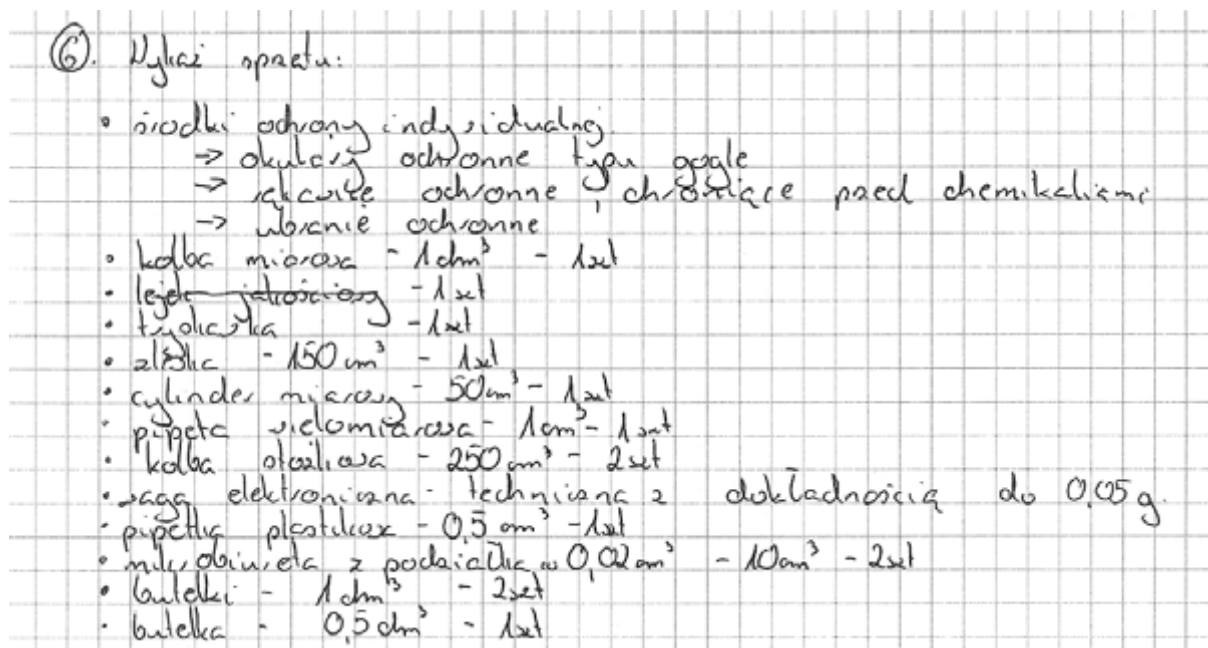 ⑥. Wykaz sprzętu:
• środki ochrony indywidualnej
→ okulary ochronne typu gogle
→ rękawice ochronne, chroniące przed chemikaliami
→ ubranie ochronne
• kolba miarowa - 1 dm³ - 1szt
• lejek jakościowy - 1szt
• tryskawka - 1szt
• zlewka - 150 cm³ - 1szt
• cylinder miarowy - 50cm³ - 1szt
• pipeta wielomiarowa - 1cm³ - 1szt
• kolba stożkowa - 250 cm³ - 2szt
• waga elektroniczna - techniczna z dokładnością do 0,05 g.
• pipetka plastikowa - 0,5 cm³ - 1szt
• mikrobiureta z podziałką co 0,02 cm³ - 10cm³ - 2szt
• butelki - 1 dm³ - 2szt
• butelka - 0,5 dm³ - 1szt